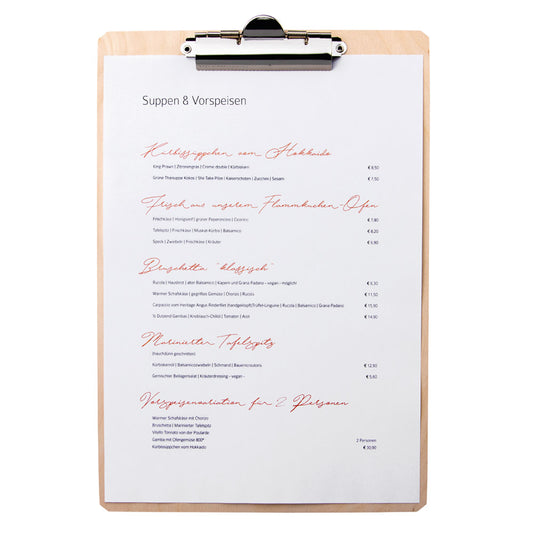 Suppen & Vorspeisen
Kürbissüppchen vom Hokkaido
King Prawn | Zitronengras | Creme double | Kürbiskern € 8,50
Grüne Thaisuppe Kokos | Shii Take Pilze | Kaiserschoten | Zucchini | Sesam € 7,50
Frisch aus unserem Flammkuchen-Ofen
Frischkäse | Honigseif | grüner Peperoncino | Chorizo € 7,80
Tafelspitz | Frischkäse | Muskat-Kürbis | Balsamico € 8,20
Speck | Zwiebeln | Frischkäse | Kräuter € 6,90
Bruschetta "klassisch"
Rucola | Hausbrot | alter Balsamico | Kapern und Grana Padano - vegan - möglich! € 8,30
Warmer Schafskäse | gegrilltes Gemüse | Chorizo | Rucola € 11,50
Carpaccio vom Heritage Angus Rinderfilet (handgeklopft)Trüffel-Linguine | Rucola | Balsamico | Grana Padano € 15,90
½ Dutzend Gambas | Knoblauch-Chiliöl | Tomaten | Aioli € 14,90
Marinierter Tafelspitz
(hauchdünn geschnitten)
Kürbiskernöl | Balsamicozwiebeln | Schmand | Bauerncroutons € 12,90
Gemischter Beilagensalat | Kräuterdressing - vegan - € 5,60
Vorspeisenvariation für 2 Personen
Warmer Schafskäse mit Chorizo
Bruschetta | Marinierter Tafelspitz
Vitello Tonnato von der Poularde
Gamba mit Ofengemüse 800° 2 Personen
Kürbissüppchen vom Hokkaido € 30,90